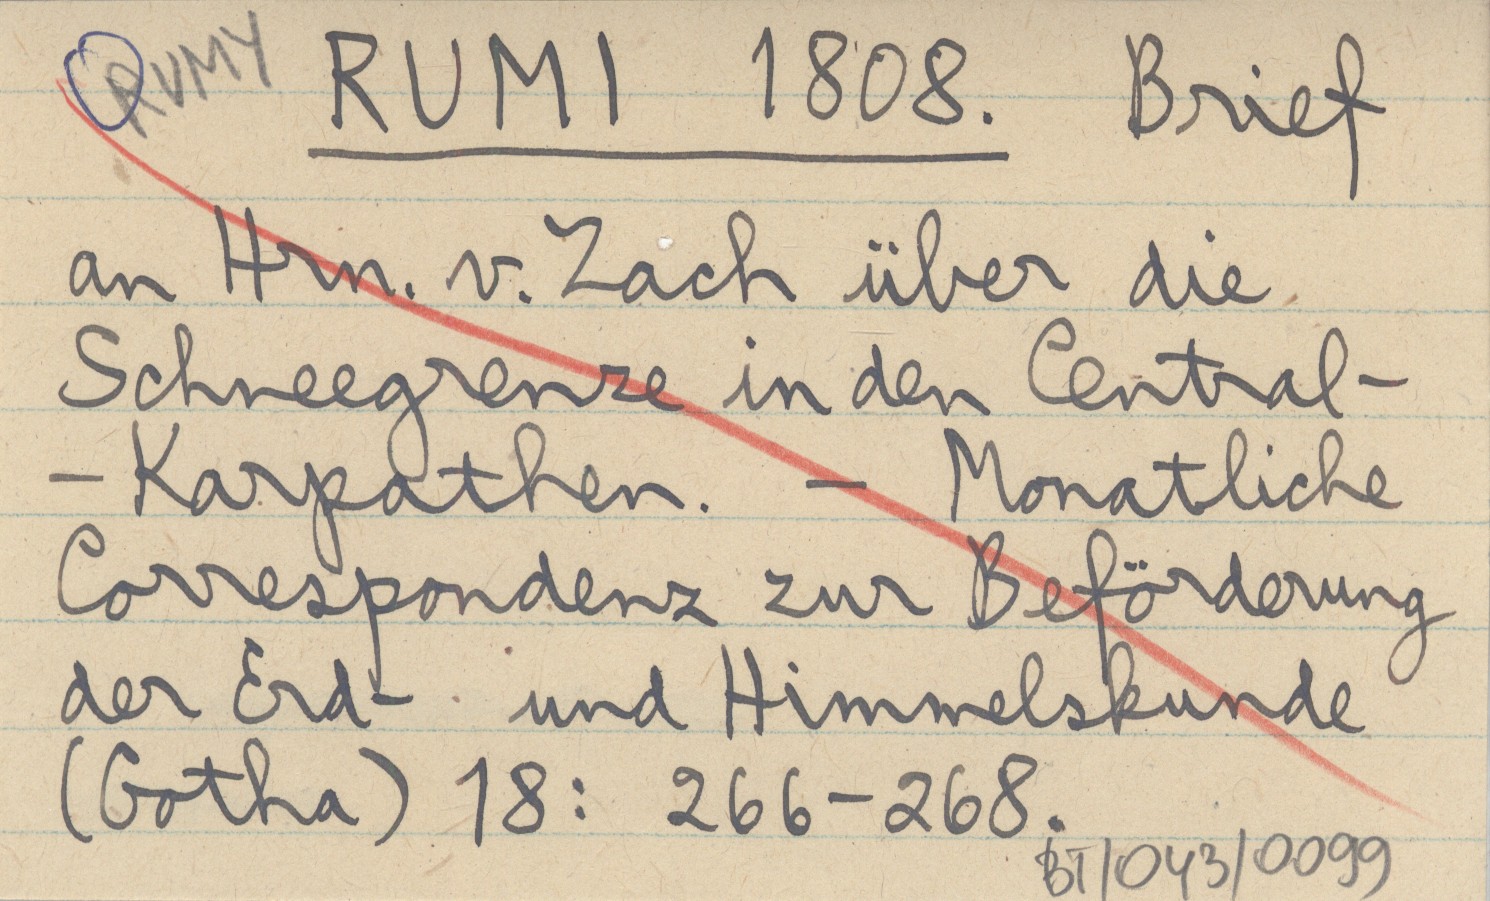 RUMY RUMI 1808. Brief
an Hrn. v. Zach über die
Schneegrenze in den Central-
- Karpathen. - Monatliche
Correspondenz zur Beförderung
der Erd- und Himmelskunde
(Gotha) 18: 266-268.
BT/043/0099